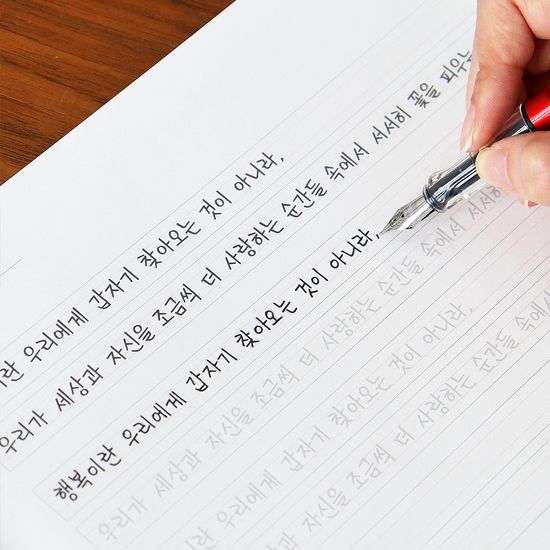 란 우리에게 갑자기 찾아오는 것이 아니라,
우리가 세상과 자신을 조금씩 더 사랑하는 순간들 속에서 서서히 꽃을 피우는
행복이란 우리에게 갑자기 찾아오는 것이 아니라,
우리가 세상과 자신을 조금씩 더 사랑하는 순간들 속에서 서서히
우리에게 갑자기 찾아오는 것이 아니라,
자신을 조금씩 더 사랑하는 순간들 속에서